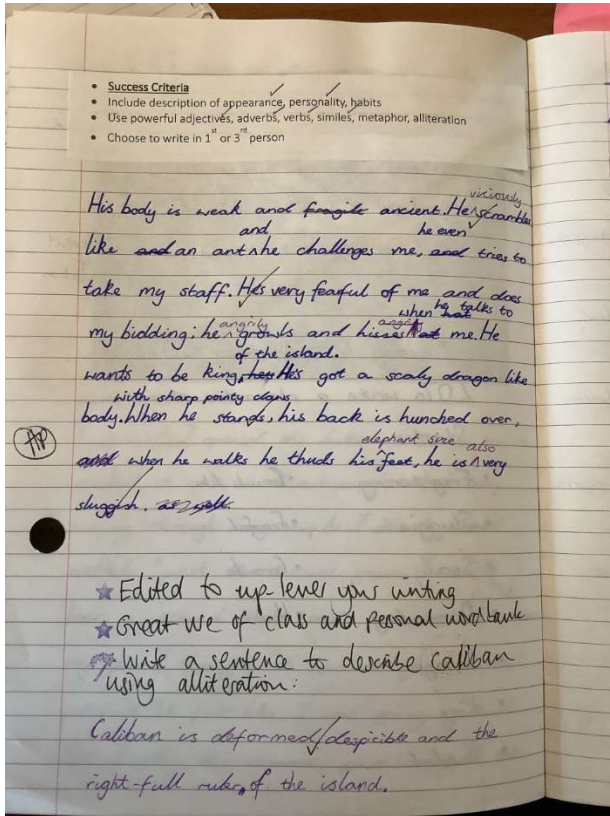 Success Criteria
• Include description of appearance, personality, habits
• Use powerful adjectives, adverbs, verbs, similes, metaphor, alliteration
• Choose to write in 1st or 3rd person
viciously
His body is weak and fragile ancient. He scrambles
and he even
like and an ant he challenges me, and tries to
take my staff. He's very fearful of me and does
when he talks to
angrily
my bidding; he growls and hisses at me. He
of the island.
wants to be king, He's got a scaly dragon like
with sharp pointy claws
body. When he stands, his back is hunched over,
elephant size also
and when he walks he thuds his feet, he is very
sluggish. as well.
AP
Edited to up-level your writing
Great use of class and personal wordbank
Write a sentence to describe Caliban
using alliteration:
Caliban is deformed, despicible and the
right-full ruler of the island.